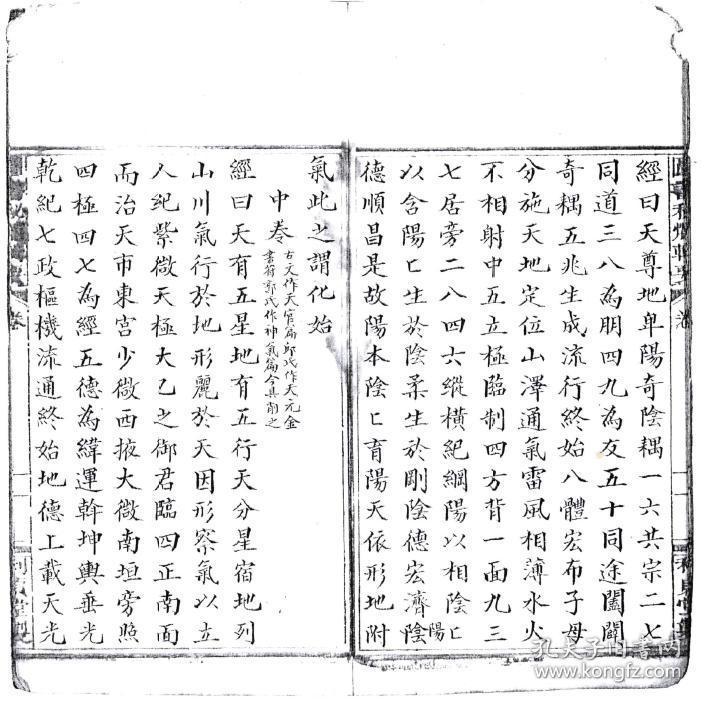 經曰天尊地卑陽奇陰耦一六共宗二七
同道三八為朋四九為友五十同途闔闢
奇耦五兆生成流行終始八體宏布子母
分施天地定位山澤通氣雷風相薄水火
不相射中五立極臨制四方背一面九三
七居旁二八四六縱橫紀綱陽以相陰匕
以含陽匕生於陰柔生於剛陰德宏濟陽
德順昌是故陽本陰匕育陽天依形地附
氣此之謂化始
中卷
古文作天官篇郭氏作天元金
書符郭氏作神氣篇今具削之
經曰天有五星地有五行天分星宿地列
山川氣行於地形麗於天因形察氣以立
人紀紫微天極大乙之御君臨四正南面
而治天市東宮少微西掖大微南垣旁照
四極四七為經五德為緯運斡坤輿垂光
乾紀七政樞機流通終始地德上載天光
卷
卷
孔夫子旧书网
www.kongfz.com